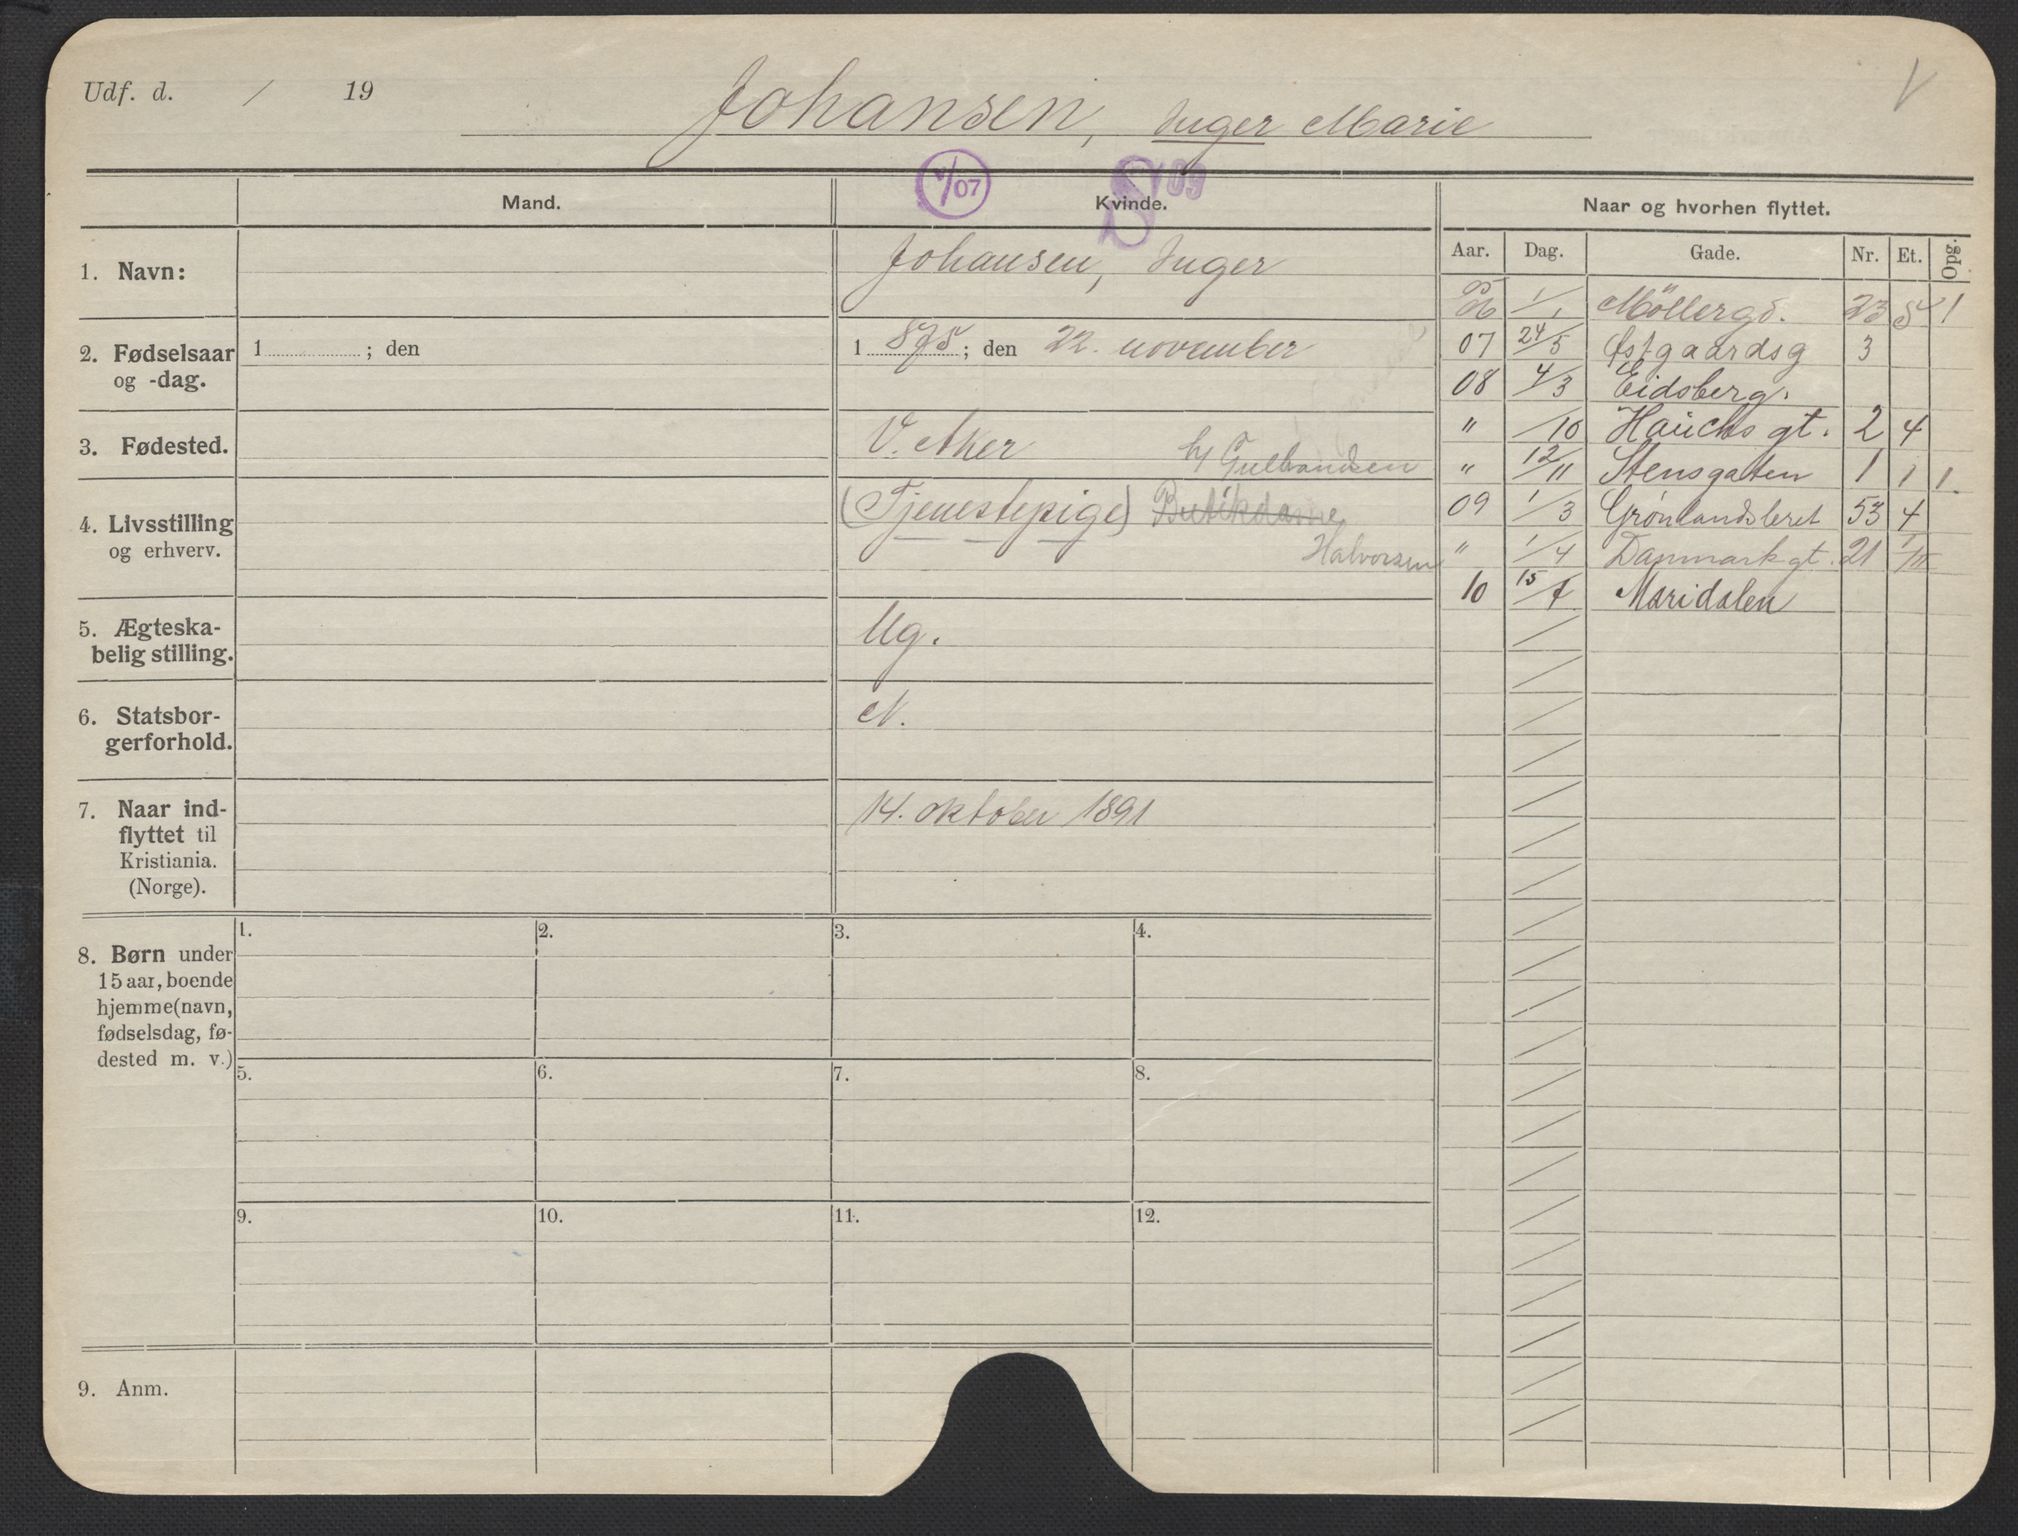 Udf. d. / 19
Johansen, Inger Marie
V
V/07
S 09
Mand.
Kvinde.
Naar og hvorhen flyttet.
Aar. Dag. Gade. Nr. Et. Opg.
1. Navn:
Johansen, Inger
2. Fødselsaar
og -dag.
1 ; den
1 875; den 22. november
3. Fødested.
V. Aker
h/ Gulbrandsen
4. Livsstilling
og erhverv.
(Tjenestepige) Butikdame
Halvorsen
5. Ægteska-
belig stilling.
Ug.
6. Statsbor-
gerforhold.
N.
7. Naar ind-
flyttet til
Kristiania.
(Norge).
14. oktober 1891
8. Børn under
15 aar, boende
hjemme (navn,
fødselsdag, fø-
dested m. v.)
1. 2. 3. 4.
5. 6. 7. 8.
9. 10. 11. 12.
9. Anm.
1/1 Möllergd. 23 1
07 24/5 Østgaardsg 3
08 4/3 Eidsberg.
" /10 Hauchs gt. 2 4
" 12/11 Stensgaten 1 1 1.
09 1/3 Grønlandsleret 53 4
" 1/4 Danmark gt. 21 1/III
10 15/4 Maridalen